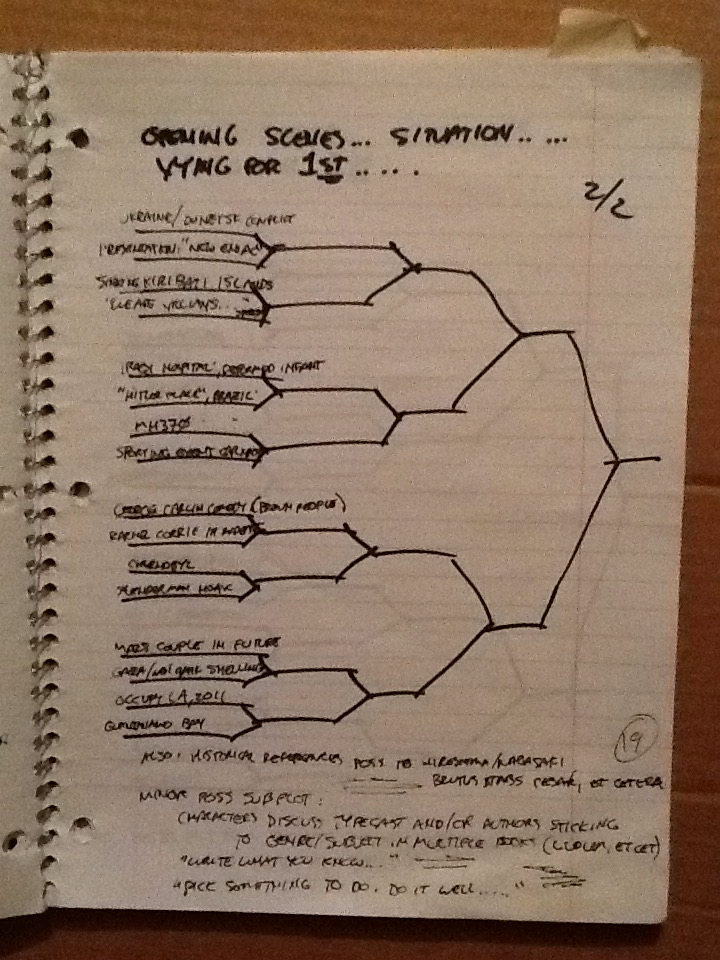 OPENING SCENES... SITUATION.. ...
VYING FOR 1ST.. ...
2/2
UKRAINE/DONETSK CONFLICT
PRESENTATION: "NEW
SINKING KIRIBATI ISLANDS
IRAQI HOSPITAL, DEFORMED INFANT
"HITLER PLACE", BRAZIL
MH370
SPORTING EVENT
GEORGE CARLIN COMEDY (BROWN PEOPLE)
RACHEL CORRIE IN
CHERNOBYL
SLENDERMAN HOAX
MARS COUPLE IN FUTURE
GAZA/ SHELLING
OCCUPY LA, 2011
GUANTANAMO BAY
19
ALSO: HISTORICAL REFERENCES POSS TO HIROSHIMA/NAGASAKI
BRUTUS STABS CEASAR, ET CETERA
MINOR POSS SUBPLOT:
CHARACTERS DISCUSS TYPECAST AND/OR AUTHORS STICKING
TO GENRE/SUBJECT IN MULTIPLE BOOKS (LUDLUM, ET CET)
"WRITE WHAT YOU KNOW..."
"PICK SOMETHING TO DO. DO IT WELL....."